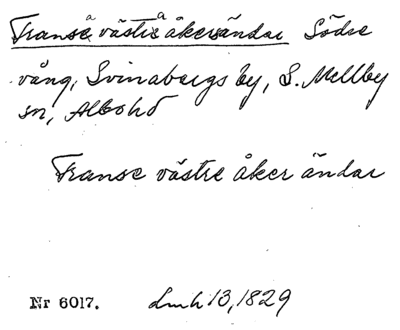 Transe västre åkersändar Södre
vång, Svinabergs by, S. Mellby
sn, Albo hd
Transe västre åker ändar
Nr 6017. Lmh 13, 1829